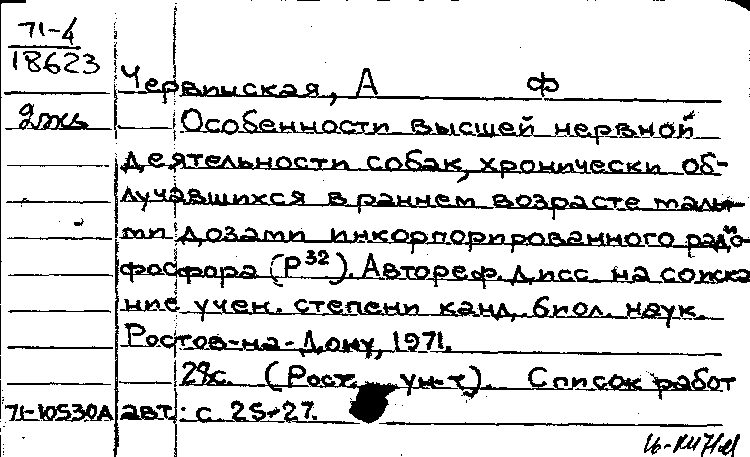 71-4
18623
Червинская, А ф
2экз Особенности высшей нервной
деятельности собак, хронически об-
лучавшихся в раннем возрасте малы-
ми дозами инкорпорированного радио-
фосфора (P32). Автореф. дисс. на соиска
ние учен. степени канд. биол. наук.
Ростов-на-Дону, 1971.
28с. (Рост. ун-т). Список работ
71-10530А авт.: с. 25-27.